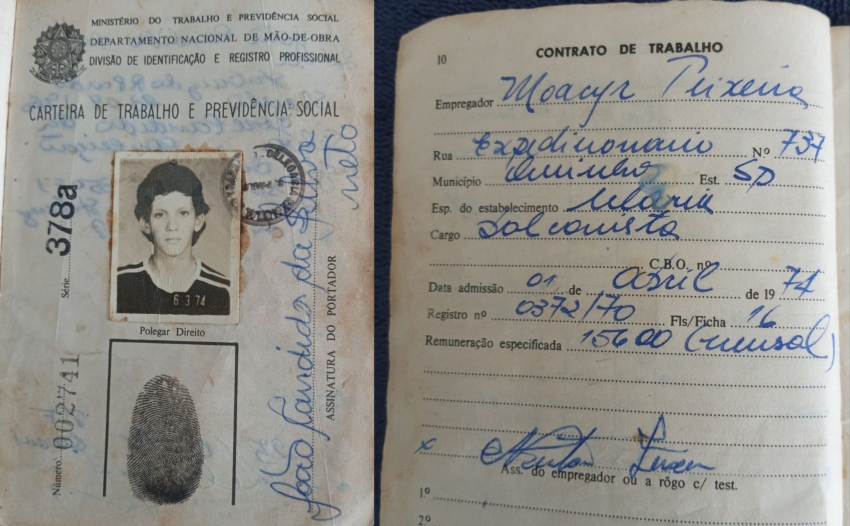 MINISTÉRIO DO TRABALHO E PREVIDÊNCIA SOCIAL
DEPARTAMENTO NACIONAL DE MÃO-DE-OBRA
DIVISÃO DE IDENTIFICAÇÃO E REGISTRO PROFISSIONAL
CARTEIRA DE TRABALHO E PREVIDÊNCIA SOCIAL
Número 002741 Série 378a
6 3 74
Polegar Direito
João Candido da Silva
Neto
ASSINATURA DO PORTADOR
10
CONTRATO DE TRABALHO
Empregador Moacyr Teixeira
Rua Expedicionario Nº 737
Município Ourinhos Est. SP
Esp. do estabelecimento
Cargo Balconista
C.B.O. nº
Data admissão 01 de Abril de 1974
Registro nº 0372/70 Fls/Ficha 16
Remuneração especificada 15600 (mensal)
x
Ass. do empregador ou a rôgo c/ test.
1º
2º